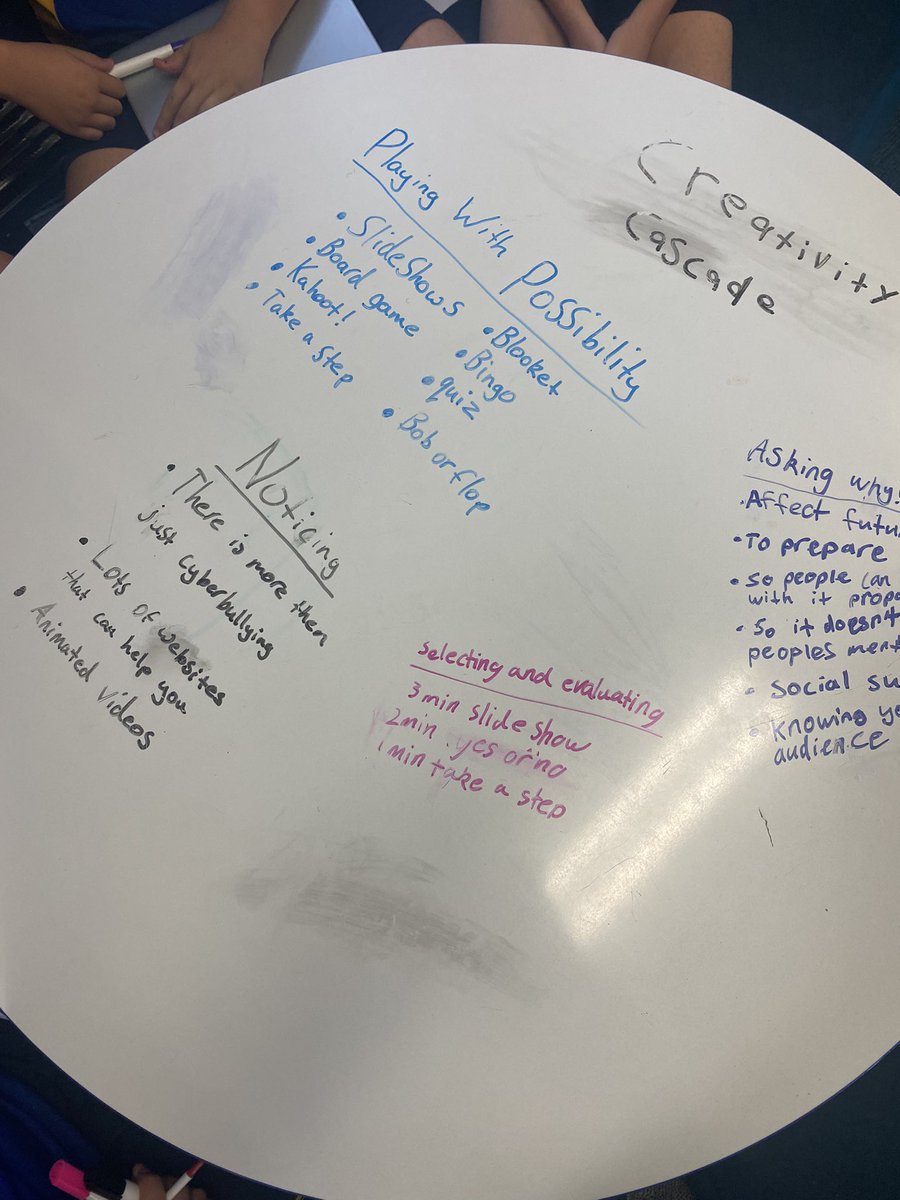 Creativity
Cascade
Playing With Possibility
• SlideShows
• Board game
• Kahoot!
• Take a Step
• Blooket
• Bingo
• quiz
• Bob or flop
Noticing
• There is more then
just cyberbullying
• Lots of websites
that can help you
• Animated videos
Selecting and evaluating
3 min slide show
2 min yes or no
1 min take a step
Asking why?
• Affect
• To prepare
• so people can
with it
• So it doesn't
peoples
• Social
• Knowing
audience